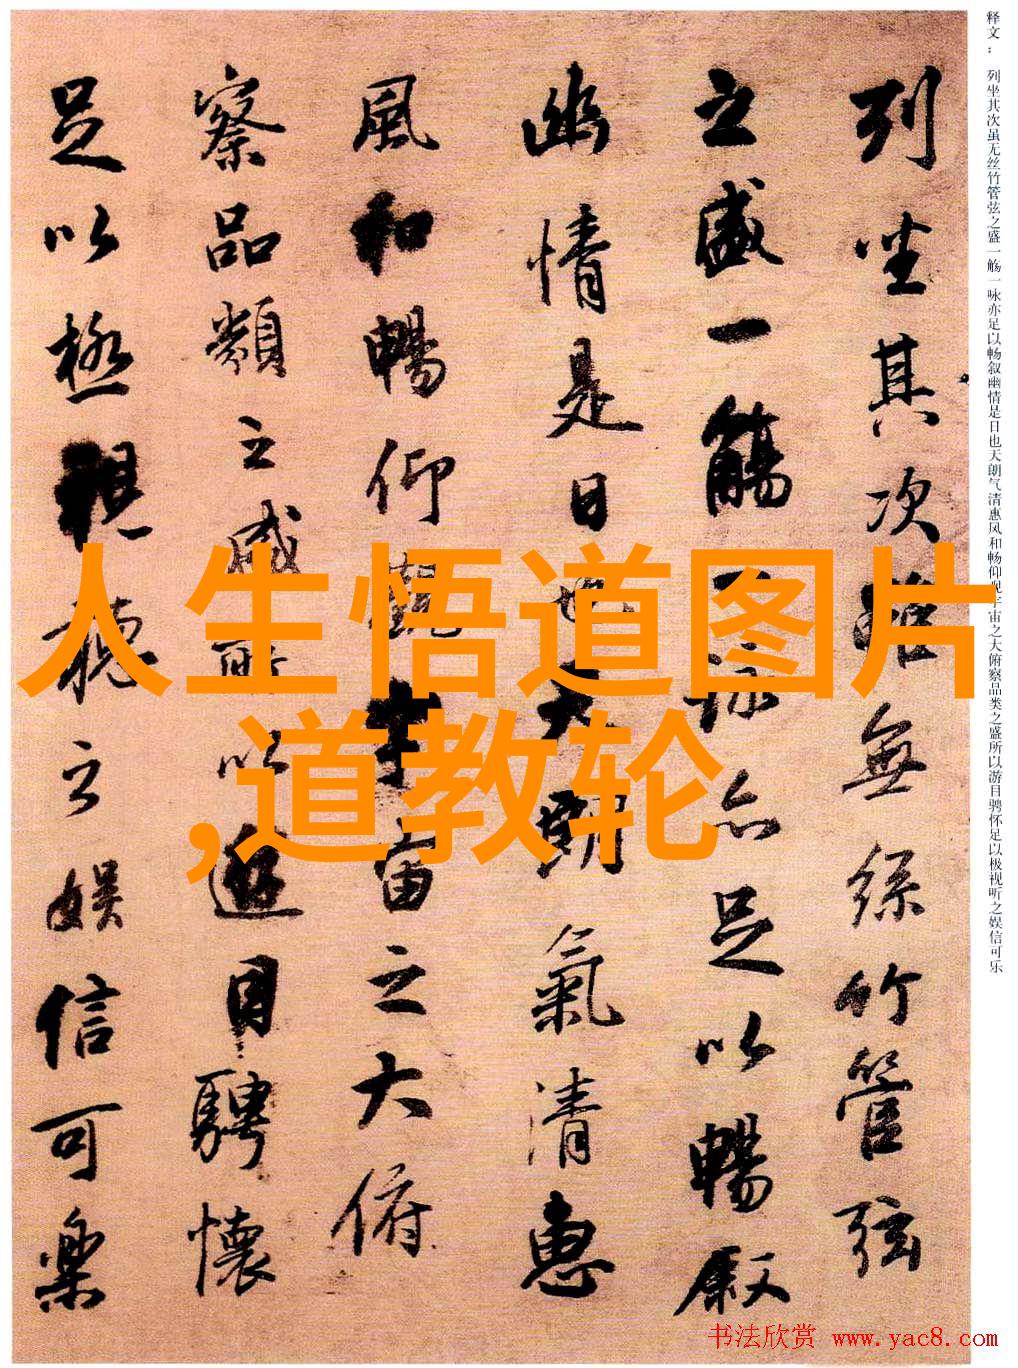 释文：列坐其次虽无丝竹管弦之盛一觞一咏亦足以畅叙幽情是日也天朗气清惠风和畅仰观宇宙之大俯察品类之盛所以游目骋怀足以极视听之娱信可乐
列坐其次雖無絲竹管弦
之盛一觴一詠亦足以暢叙
幽情是日也天朗氣清惠
風和暢仰觀宇宙之大俯
察品類之盛所以遊目騁懷
足以極視聽之娛信可樂
人生悟道图片
,道教轮
书法欣赏 www.yac8.com